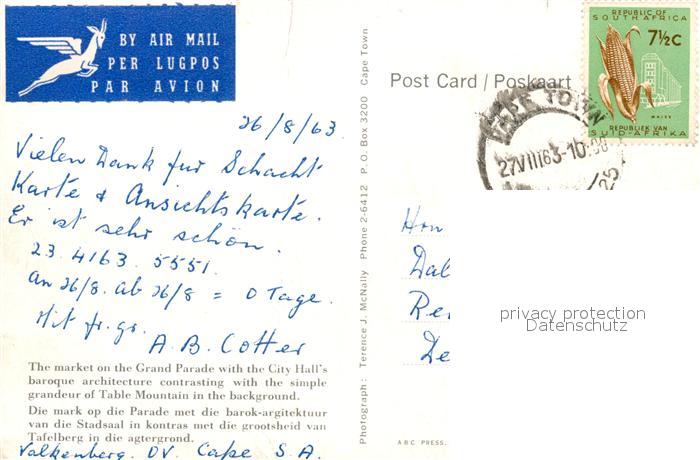 BY AIR MAIL
PER LUGPOS
PAR AVION
REPUBLIC OF
SOUTH AFRICA
7½c
MAIZE
REPUBLIEK VAN
SUID-AFRIKA
Post Card / Poskaart
TOWN
27VIII63-10
26/8/63.
Vielen Dank für Schacht
Karte & Ansichtskarte.
Er ist sehr schön.
23. 4163. 5551.
an 26/8. ab 26/8 = 0 Tage.
Mit fr. gr.
A. B. Cotter
The market on the Grand Parade with the City Hall's
baroque architecture contrasting with the simple
grandeur of Table Mountain in the background.
Die mark op die Parade met die barok-argitektuur
van die Stadsaal in kontras met die grootsheid van
Tafelberg in die agtergrond.
Valkenberg. OV. Cape S. A.
Photograph: Terence J. McNally Phone 2-6412 P.O. Box 3200 Cape Town
privacy protection
Datenschutz
ABC PRESS.